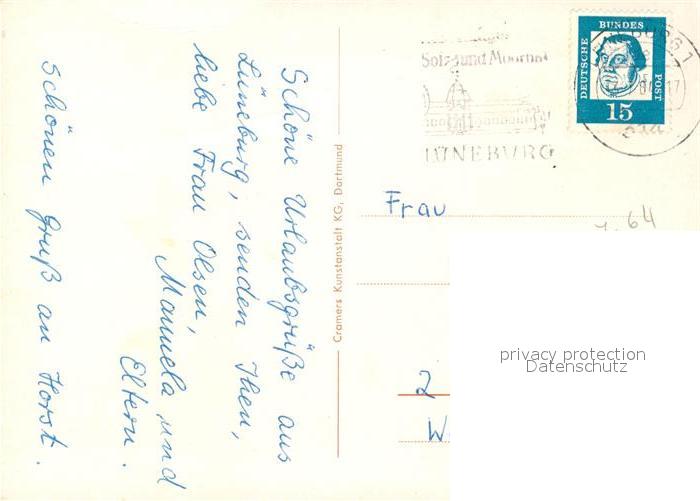 Schöne Urlaubsgrüße aus
Lüneburg, senden Ihen,
liebe Frau Olsen,
Manuela und
Eltern.
Schönen Gruß an Horst.
Cramers Kunstanstalt KG, Dortmund
Sol- und Moorbad
LÜNEBURG
DEUTSCHE
BUNDES
POST
15
Frau
64
2
privacy protection
Datenschutz